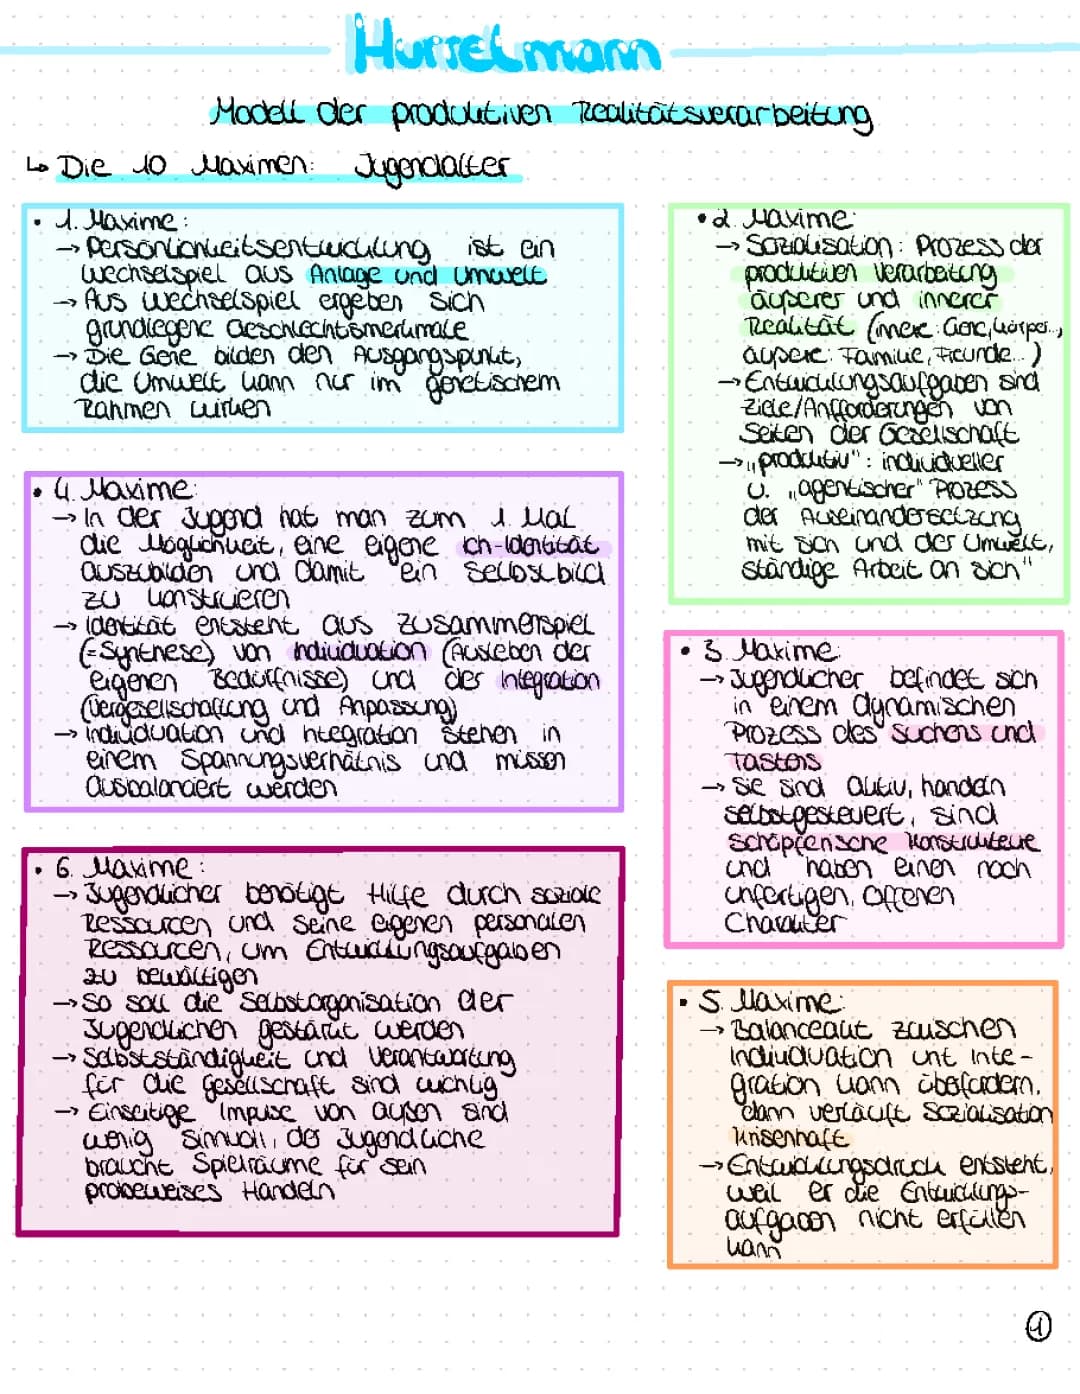 Hurrelmann
Modell der produktiven Realitätsverarbeitung
↳ Die 10 Maximen: Jugendalter
• 1. Maxime:
→ Persönlichkeitsentwicklung ist ein
Wechselspiel aus Anlage und Umwelt
→ Aus Wechselspiel ergeben sich
grundlegene Geschlechtsmerkmale
→ Die Gene bilden den Ausgangspunkt,
die Umwelt kann nur im genetischem
Rahmen wirken
• 2. Maxime:
→ Sozialisation: Prozess der
produktiven Verarbeitung
äußerer und innerer
Realität (innere: Gene, Körper..,
äußere: Familie, Freunde...)
→ Entwicklungsaufgaben sind
Ziele/Anfforderungen von
Seiten der Gesellschaft
→ „produktiv": individueller
u. „agentischer" Prozess
der Auseinandersetzung
mit sich und der Umwelt,
ständige Arbeit an sich"
• 3. Maxime:
→ Jugendlicher befindet sich
in einem dynamischen
Prozess des Suchens und
Tastens
→ Sie sind aktiv, handeln
selbstgesteuert, sind
schöpferische Konstrukteure
und haben einen noch
unfertigen, offenen
Charakter
• 4. Maxime:
→ In der Jugend hat man zum 1. Mal
die Möglichkeit, eine eigene Ich-Identität
auszubilden und damit ein Selbstbild
zu konstruieren
→ Identität entsteht aus Zusammenspiel
(=Synthese) von Individuation (Ausleben der
eigenen Bedürfnisse) und der Integration
(Vergesellschaftung und Anpassung)
→ Individuation und Integration stehen in
einem Spannungsverhätnis und müssen
ausbalanciert werden
• 5. Maxime:
→ Balanceakt zwischen
Individuation unt Inte-
gration kann überfordern,
dann verläuft Sozialisation
krisenhaft
→ Entwicklungsdruck entsteht,
weil er die Entwicklungs-
aufgaben nicht erfüllen
kann
• 6. Maxime:
→ Jugendlicher benötigt Hilfe durch soziale
Ressourcen und seine eigenen personalen
Ressourcen, um Entwicklungsaufgaben
zu bewältigen
→ So soll die Selbstorganisation der
Jugendlichen gestärkt werden
→ Selbstständigkeit und Verantwortung
für die Gesellschaft sind wichtig
→ Einseitige Impulse von außen sind
wenig sinnvoll, der Jugendliche
braucht Spielräume für sein
probeweises Handeln
1